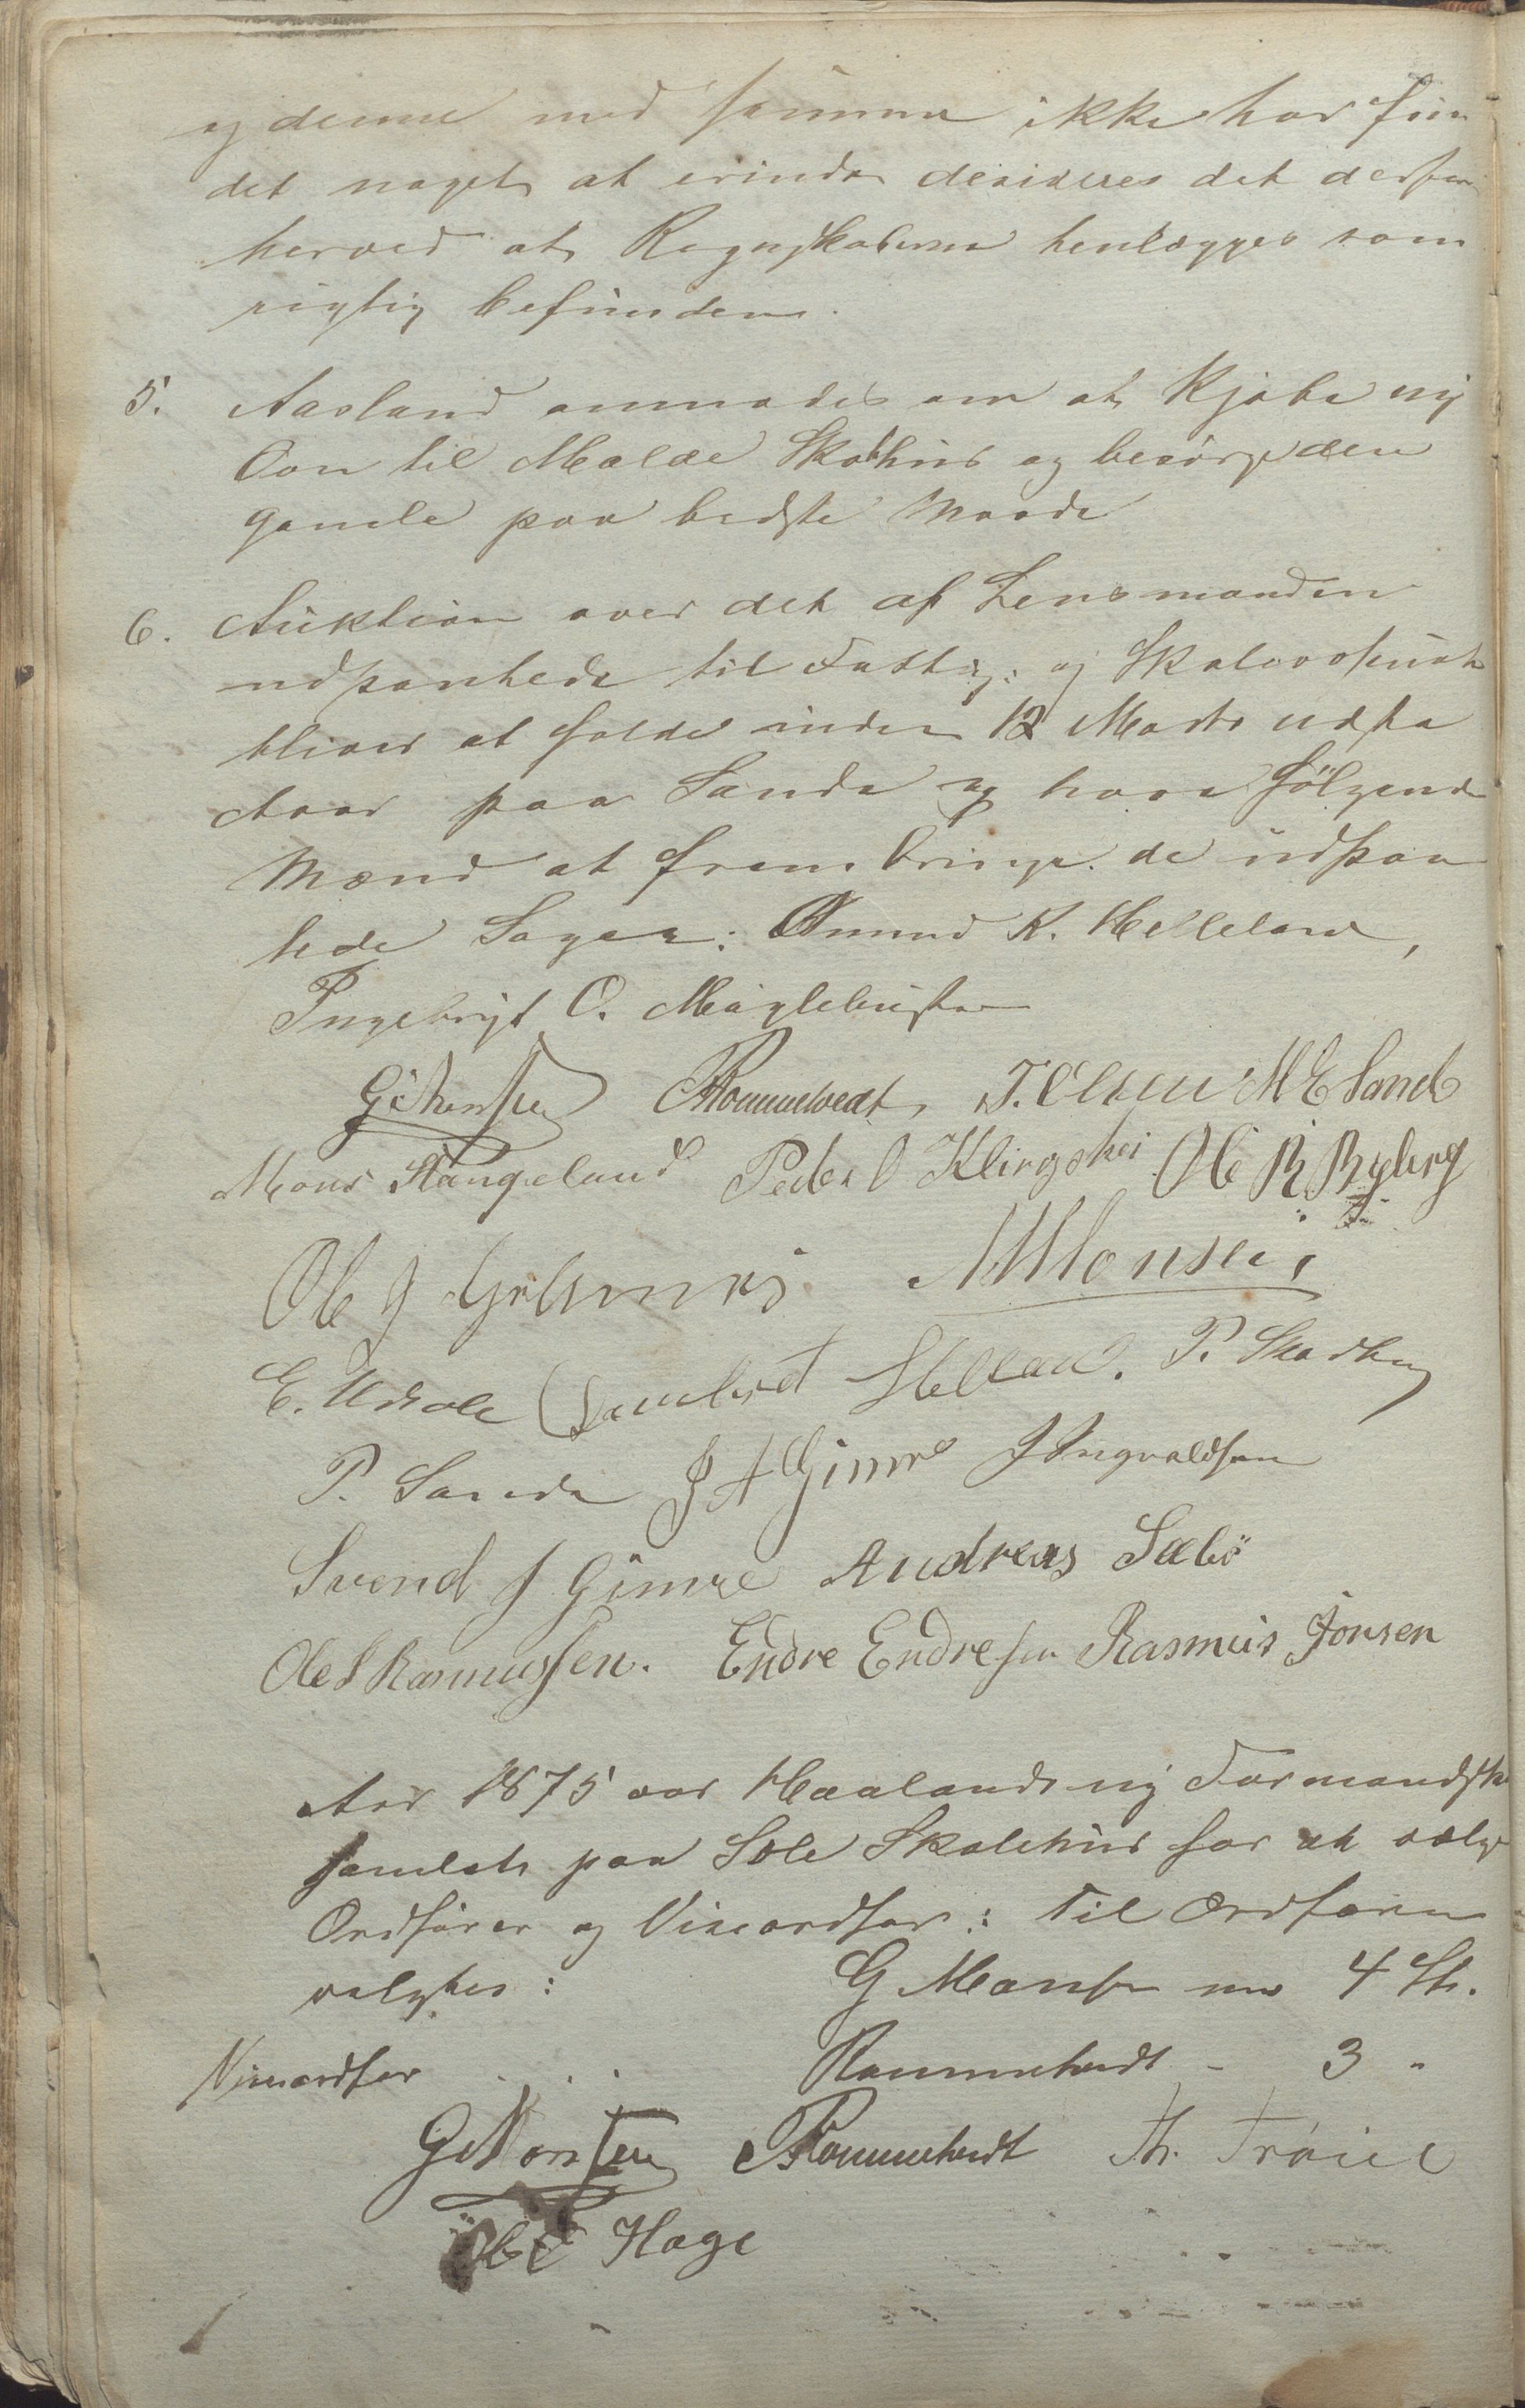 og denne med samme ikke har fun
det noget at erindre desideres det derfor
herved at Regnskaberne henlægges som
rigtig befundne.
5. Aasland anmodes om at Kjøbe ny
Oon til Malde Skolhus og besörge den
gamle paa bedste Maade
6. Auktion over det af Lensmanden
udpantede til Fattig: og Skolevæsenet
bliver at holde inden 12 Marts udstr
Aar paa Sande og have fölgende
Mænd at frembringe de udpan
tede Sager: Omund K. Helleland,
Ingebrigt O. Myglebust
G Monsen Rommetvedt, T. Olsen M E Sande
Mons Stangeland Peder O Klingshei Ole R Ryberg
Ole J Grannes M Monsen
E. Utsole Gunbret Helland. P. Skadberg
P. Sande J A Gimre J Ingvaldsen
Svend J Gimre Andreas Sælö
Ole S Rasmussen. Endre Endresen Rasmus Jonsen
Aar 1875 var Haalands ny Formandsk
samlet paa Sole Skolehus for at vælge
Ordförer og Viseordfør: Til Ordførere
valgtes: G Monsen med 4 St.
Viseordfør . . . Rommetvedt - 3 "
G Monsen Rommetvedt Th. Trøiel
Ole E Hage